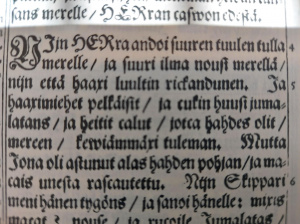 sans merelle / HERran caswon edestä.
NIjn HERra andoi suuren tuulen tulla 4
merelle / ja suuri ilma nousi merellä /
nijn että haaxi luultin rickandunen. Ja 5
haaximiehet pelkäisit / ja cukin huusi juma-
latans / ja heitit calut / jotca hahdes olit /
mereen / kewiämmäxi tuleman. Mutta
Jona oli astunut alas hahden pohjan / ja ma-
cais unesta rascautettu. Nijn Skippari 6
meni hänen tygöns / ja sanoi hänelle: mixis
macat? nouse / ja rucoile Jumalatas /